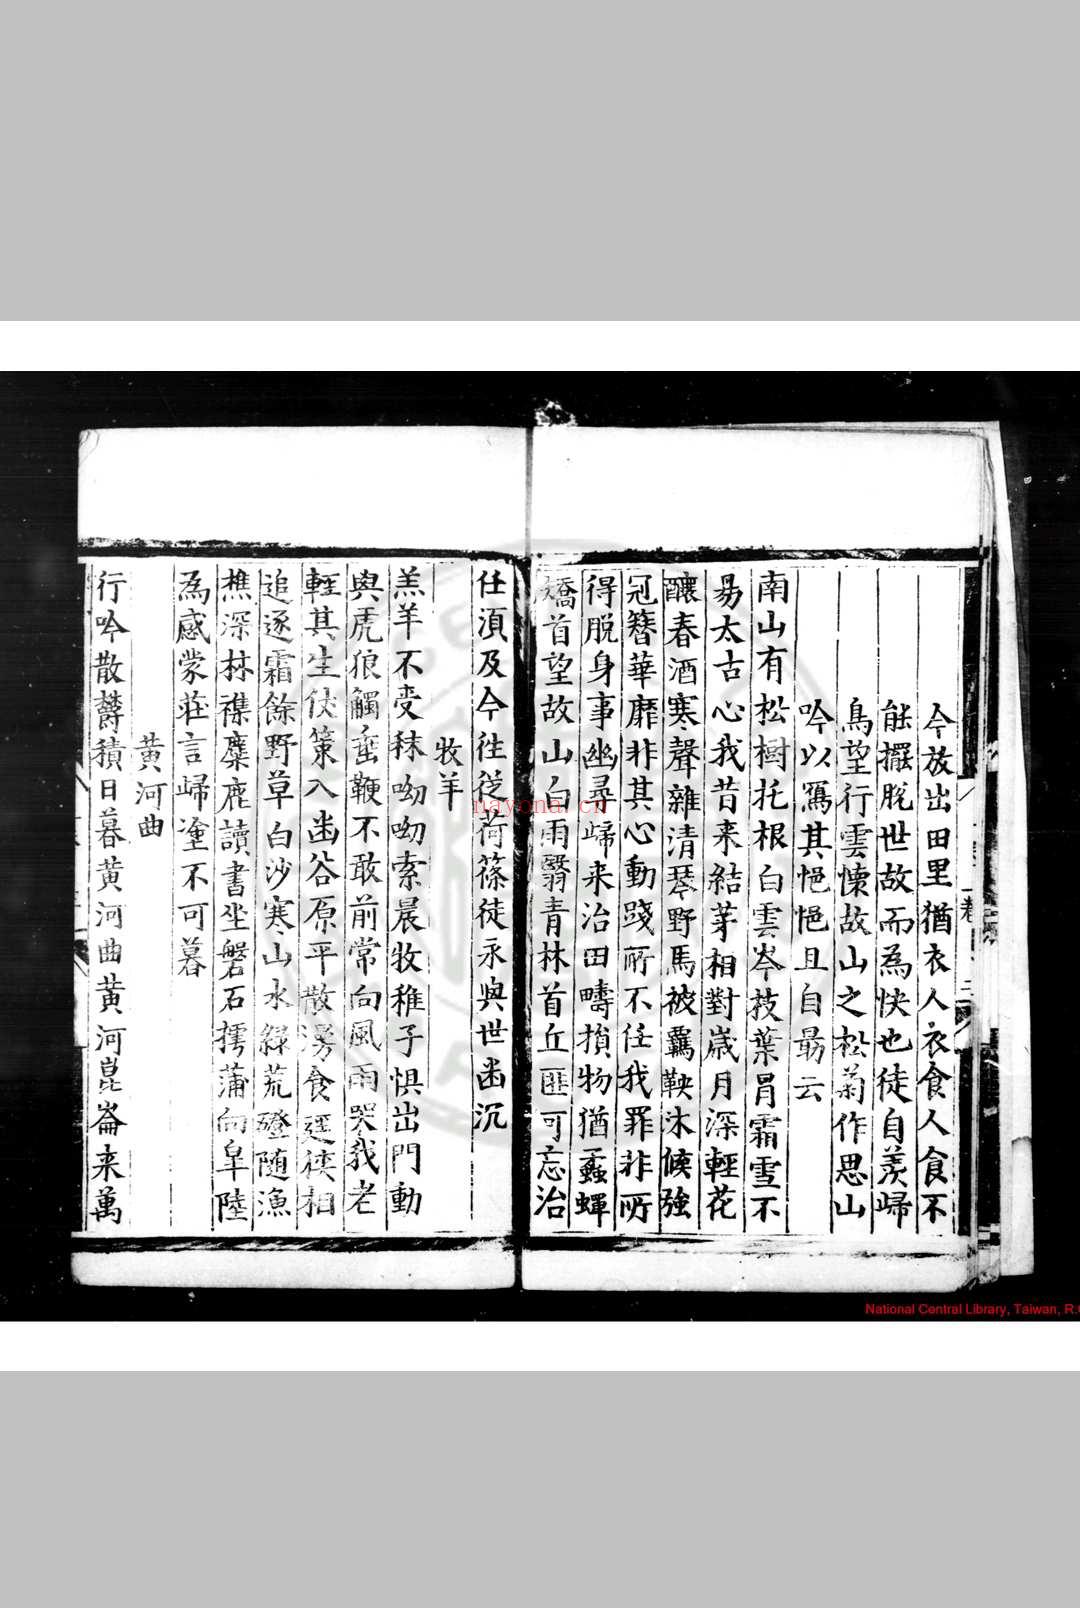 今放出田里猶衣人衣食人食不
能擺脫世故而為快也徒自羨歸
鳥望行雲懷故山之松菊作思山
吟以寫其悒悒且自勗云
南山有松樹托根白雲岑枝葉冐霜雪不
易太古心我昔來結茅相對嵗月深輕花
釀春酒寒聲雜清琴野馬被羈鞅沐猴強
冠簪華靡非其心動踐所不任我罪非所
得脫身事幽尋歸来治田疇損物猶蠹蟫
矯首望故山白雨翳青林首丘匪可忘治
仕湏及今徃從荷篠徒永與世幽沉
牧羊
羔羊不受秣呦呦索晨牧稚子惧出門動
與虎狼觸垂鞭不敢前常向風雨哭我老
輕其生伏策入幽谷原平散漫食逕俠相
追逐霜餘野草白沙寒山水綠荒磴随漁
樵深林襍麋鹿讀書坐磐石擩蒲向皐陸
為感蒙莊言歸塗不可暮
黄河曲
行吟散欝積日暮黄河曲黄河崑崙来萬
卷
三
nayona.cn
National Central Library, Taiwan, R.